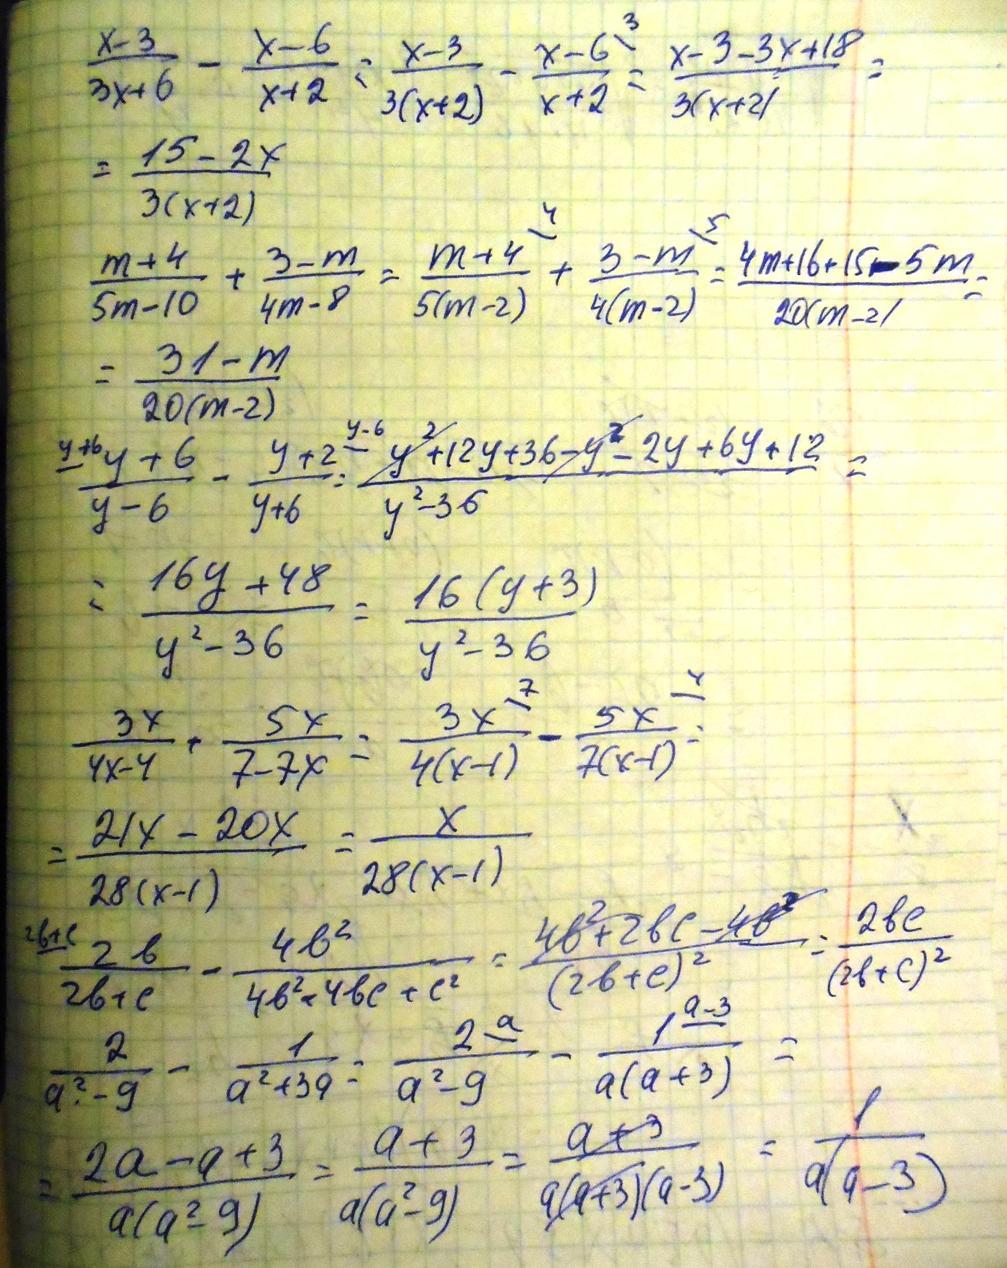 (x-3)/(3x+6) - (x-6)/(x+2) = (x-3)/(3(x+2)) - (x-6)/(x+2) \3 = (x-3-3x+18)/(3(x+2)) =
= (15-2x)/(3(x+2))
(m+4)/(5m-10) + (3-m)/(4m-8) = (m+4)/(5(m-2)) \4 + (3-m)/(4(m-2)) \5 = (4m+16+15-5m)/(20(m-2)) =
= (31-m)/(20(m-2))
y+6/ (y+6)/(y-6) - (y+2)/(y+6) \y-6 = (y²+12y+36-y²-2y+6y+12)/(y²-36) =
= (16y+48)/(y²-36) = (16(y+3))/(y²-36)
3x/(4x-4) + 5x/(7-7x) = 3x/(4(x-1)) \7 - 5x/(7(x-1)) \4 =
= (21x-20x)/(28(x-1)) = x/(28(x-1))
2b+c/ 2b/(2b+c) - 4b²/(4b²+4bc+c²) = (4b²+2bc-4b²)/(2b+c)² = 2bc/(2b+c)²
2/(a²-9) - 1/(a²+3a) = 2/(a²-9) \a - 1/(a(a+3)) \a-3 =
= (2a-a+3)/(a(a²-9)) = (a+3)/(a(a²-9)) = (a+3)/(a(a+3)(a-3)) = 1/(a(a-3))